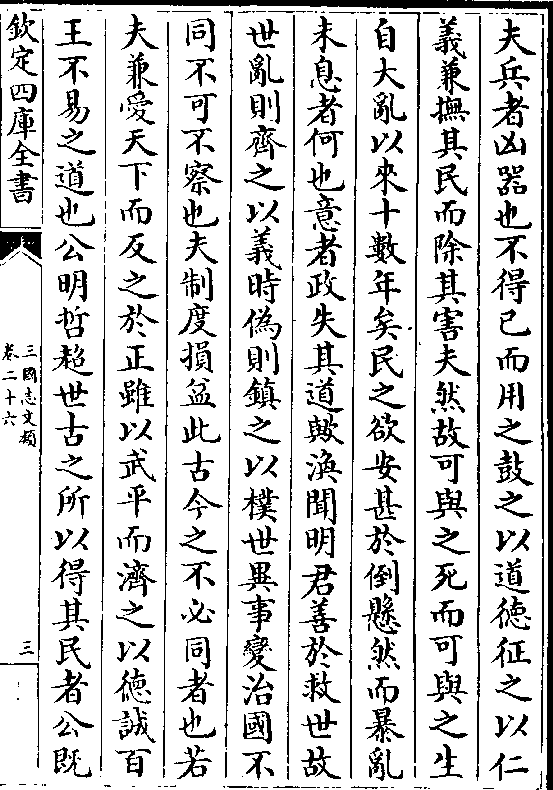 夫兵者凶器也不得已而用之鼓之以道德征之以仁
義兼撫其民而除其害夫然故可與之死而可與之生
自大亂以來十數年矣民之欲安甚於倒懸然而暴亂
未息者何也意者政失其道歟渙聞明君善於救世故
世亂則齊之以義時偽則鎮之以樸世異事變治國不
同不可不察也夫制度損益此古今之不必同者也若
夫兼愛天下而反之於正雖以武平而濟之以德誠百
王不易之道也公明哲超世古之所以得其民者公既
欽定四庫全書
三國志文類
卷二十六
三